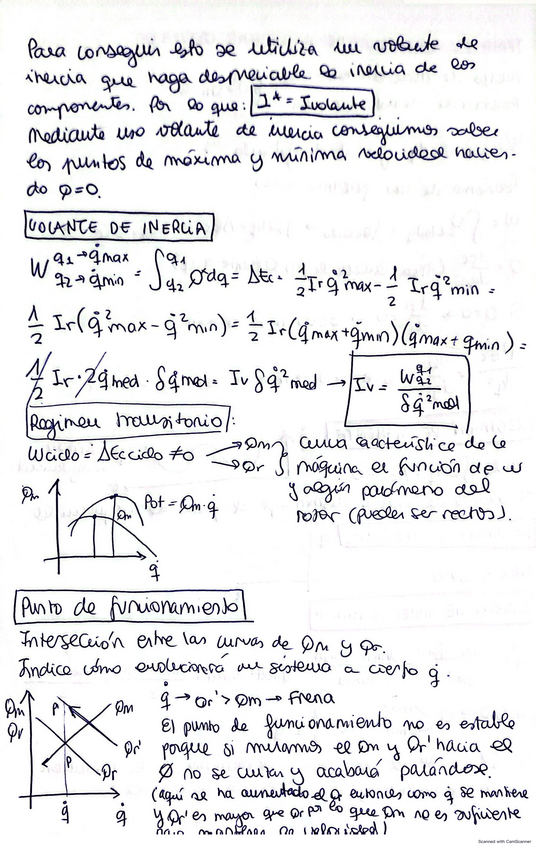 Para conseguir esto se utiliza un volante de
inercia que haga despreciable la inercia de los
componentes. Por lo que: I* = Ivolante
Mediante uso volante de inercia conseguimos saber
los puntos de máxima y mínima velocidad hacien-
do Q=0.
VOLANTE DE INERCIA
W q1→q̇max q2→q̇min = ∫ q1 q2 Q dq = ΔEc = 1/2 Ir q̇²max - 1/2 Ir q̇²min =
1/2 Ir (q̇²max - q̇²min) = 1/2 Ir (q̇max + q̇min)(q̇max + q̇min) =
1/2 Ir · 2q̇med · δq̇med = Iv δq̇²med → Iv = W q1 q2 / δq̇²med
Regimen transitorio:
Wciclo = ΔEcciclo ≠ 0 → Qm → Qr } curva característica de la
máquina en función de w
y algún parámetro del
motor (pueden ser rectas).
Qm Pot = Qm·q̇
Qm
q̇
Punto de funcionamiento
Intersección entre las curvas de Qm y Qr.
Indica cómo evolucionará un sistema a cierto q̇.
q̇ → Qr' > Qm → Frena
Qm Qr P Qm
El punto de funcionamiento no es estable
Qr' porque si miramos el Qm y Qr' hacia el
P Qr
0 no se cortan y acabará parándose.
(aquí se ha aumentado el Qr entonces como q̇ se mantiene
q̇ q̇ y Qr' es mayor que Qr por lo que Qm no es suficiente
para mantener la velocidad)
Scanned with CamScanner